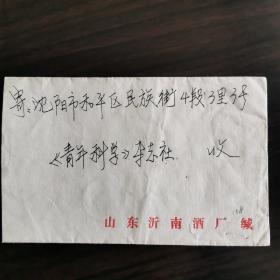 寄:沈阳市和平区民族街4段3里3号
《青年科学》杂志社 收
山东沂南酒厂缄